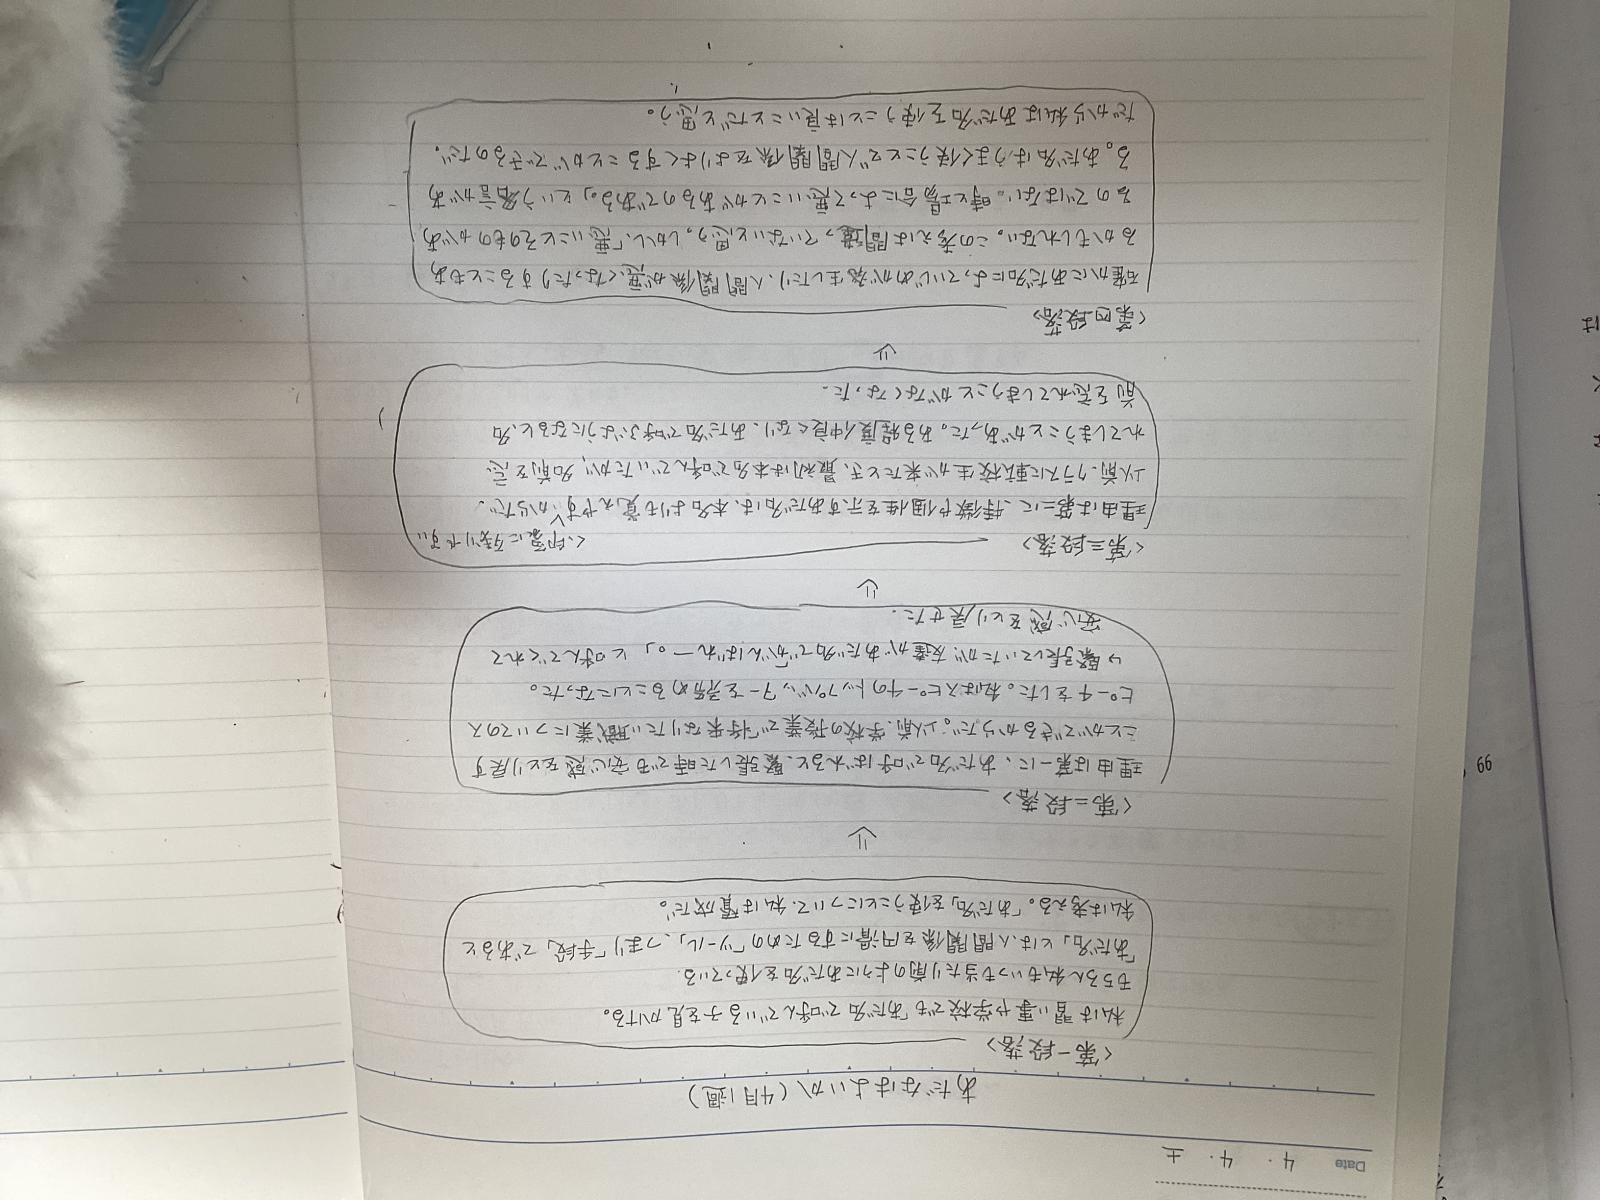 Date 4・4・土
あだなはよいか(4月1週)
<第一段落>
私は習い事や学校でも「あだ名」で呼んでいる子を見かける。
もちろん私もいつも当たり前のようにあだ名を使っている。
「あだ名」とは、人間関係を円滑にするための「ツール」、つまり「手段」であると
私は考える。「あだ名」を使うことについて、私は賛成だ。
⇓
<第二段落>
理由は第一に、あだ名で呼ばれると、緊張した時でも安心感をとり戻す
ことができるからだ。以前、学校の授業で「将来なりたい職業」についてのス
ピーチをした。私はスピーチのトップバッターを務めることになった。
↳緊張していたが、友達があだ名で「がんばれー。」と呼んでくれて
安心感をとり戻せた。
⇓
<第三段落>
<印象に残りやすい
理由は第二に、特徴や個性を示すあだ名は、本名よりも覚えやすいからだ。
以前、クラスに転校生が来たとき、最初は本名で呼んでいたが、名前を忘
れてしまうことがあった。ある程度仲良くなり、あだ名で呼ぶようになると、名
前を忘れてしまうことがなくなった。
⇓
<第四段落>
確かにあだ名によっていじめが発生したり、人間関係が悪くなったりすることもあ
るかもしれない。この考えは間違っていないと思う。しかし、「悪いことそのものがあ
るのではない。時と場合によって悪いことがあるのである。」という名言があ
る。あだ名はうまく使うことで人間関係をよりよくすることができるのだ。
だから私はあだ名を使うことは良いことだと思う。
66
は